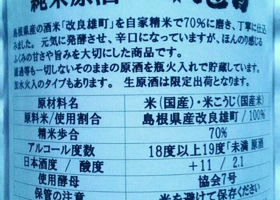 純米原酒
島根県産の酒米「改良雄町」を自家精米で70%に磨き、丁寧に仕込
みました。元気に発酵させ、辛口になっていますが、ほんのり感じる
ふくみの甘さや旨みを大切にした商品です。
濾過等も一切しないそのままの原酒を瓶火入れで貯蔵しています。
加水火入のタイプもあります。 生原酒は限定出荷となります。
原材料名 米(国産)・米こうじ(国産米)
原料米/使用割合 島根県産改良雄町/100%
精米歩合 70%
アルコール度数 18度以上19度「未満 原酒
日本酒度 / 酸度 +11 / 2.1
使用酵母 協会7号
保管の注意 光を避けて保存ください